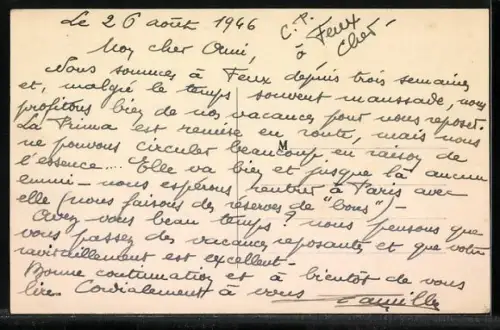 Le 26 août 1946
C.P. à Feux
Cher
Mon cher Ami,
Nous sommes à Feux depuis trois semaines
et, malgré le temps souvent maussade, nous
profitons bien de nos vacances pour nous reposer.
La Prima est remise en route, mais nous
M
ne pouvons circuler beaucoup en raison de
l'essence.... Elle va bien et jusque là aucun
ennui - nous espérons rentrer à Paris avec
elle (nous faisons des réserves de "bons") -
Avez vous beau temps? nous pensons que
vous passez des vacances reposantes et que votre
ravitaillement est excellent -
Bonne continuation et à bientôt de vous
lire. Cordialement à vous